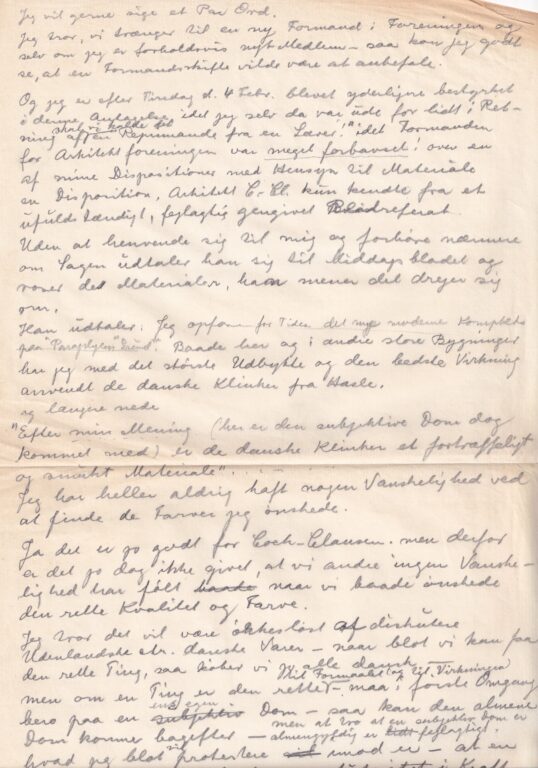 Jeg vil gerne sige et Par Ord.
Jeg tror, vi trænger til en ny Formand i Foreningen og
selv om jeg er forholdsvis nyt Medlem – saa kan jeg godt
se, at en Formandsskifte vilde være at anbefale.
Og jeg er efter Tirsdag d. 4 Febr. blevet yderligere bestyrket
i denne Antagelse, idet jeg selv da var ude for lidt i Ret-
ning af skal vi kalde det en Reprimande fra en Lærer! idet Formanden
for Arkitektforeningen var meget forbavset over en
af mine Dispositioner med Hensyn til Materiale
en Disposition, Arkitekt C-Cl. kun kendte fra et
ufuldstændigt, fejlagtig gengivet Bladreferat.
Uden at henvende sig til mig og forhøre nærmere
om Sagen udtaler han sig til Middagsbladet og
roser det Materialer, han mener det drejer sig
om.
Han udtaler: Jeg opfører for Tiden det nye moderne Kompleks
paa "Paraplyens Grund". Baade her og i andre store Bygninger
har jeg med det største Udbytte og den bedste Virkning
anvendt de danske Klinker fra Hasle.
og længere nede
"Efter min Mening (her er den subjektive Dom dog
kommet med) er de danske Klinker et fortræffeligt
og smukt Materiale".
Jeg har heller aldrig haft nogen Vanskelighed ved
at finde de Farver jeg ønskede.
Ja det er jo godt for Cock-Clausen. men derfor
er det jo dog ikke givet, at vi andre ingen Vanske-
lighed har følt naar vi baade ønskede
den rette Kvalitet og Farve.
Jeg tror det vil være ørkesløst at diskutere
Udenlandske ctr. danske Varer – naar blot vi kan faa
den rette Ting, saa køber vi jo alle dansk –
men om en Ting er den rette til Formaalet og til Virkningen – maa i første Omgang
bero paa en ens egen Dom – saa kan den almene
Dom komme bagefter – men at tro at en subjektiv Dom er almengyldig er fejlagtigt.
hvad jeg blot vil protestere imod er – at en